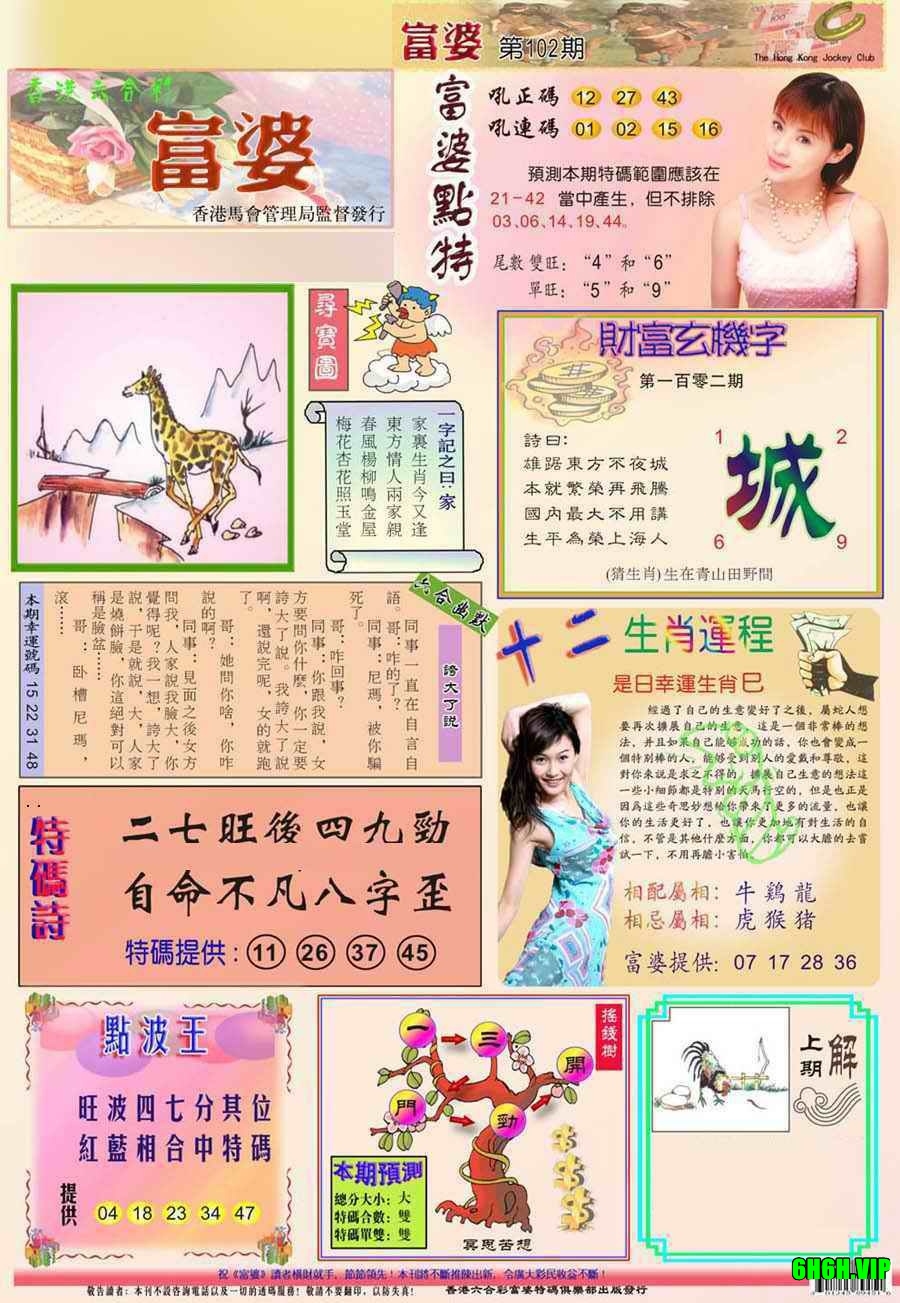 富婆 第102期
The Hong Kong Jockey Club
香港六合彩
富婆
香港馬會管理局監督發行
富婆點特
吼正碼 12 27 43
吼連碼 01 02 15 16
預測本期特碼範圍應該在
21-42 當中產生，但不排除
03、06、14、19、44。
尾數雙旺：“4”和“6”
單旺：“5”和“9”
尋寶圖
一字記之曰：家
家裏生肖今又逢
東方情人兩家親
春風楊柳鳴金屋
梅花杏花照玉堂
財富玄機字
第一百零二期
詩曰：
雄踞東方不夜城
本就繁榮再飛騰
國內最大不用講
生平為榮上海人
1 2
城
6 9
(猜生肖)生在青山田野間
六合幽默
誇大了說
同事一直在自言自
語。哥：咋的了？
同事：尼瑪，被你騙
死了。
哥：咋回事？
同事：你跟我說，女
方要問你什麼，你一定要
誇大了說。我誇大了說
啊，還說完呢，女的就跑
了。
哥：她問你啥，你咋
說的啊？
同事：見面之後女方
問我，人家說我臉大，你
覺得呢？我一想，誇大了
說，于是就說，大，人家
是燒餅臉，你這絕對可以
稱是臉盆……
哥：卧槽尼瑪，
滾……
本期幸運號碼 15 22 31 48
十二生肖運程
是日幸運生肖巳
經過了自己的生意變好了之後，屬蛇人想
要再次擴展自己的生意，這是一個非常棒的想
法，并且如果自己能够成功的話，你也會變成一
個特別棒的人，能够受到別人的愛戴和尊敬，這
對你來說是求之不得的，擴展自己生意的想法這
一些小細節都是特別的天馬行空的，但是也正是
因爲這些奇思妙想給你帶來了更多的流量，也讓
你的生活更好了，也讓你更加地有對生活的自
信，不管是其他什麼方面，你都可以大膽的去嘗
試一下，不用再膽小害怕。
相配屬相：牛鷄龍
相忌屬相：虎猴猪
富婆提供：07 17 28 36
特碼詩
二七旺後四九勁
自命不凡八字歪
特碼提供：11 26 37 45
點波王
旺波四七分其位
紅藍相合中特碼
提供 04 18 23 34 47
搖錢樹
一 三 開
門 勁
本期預測
總分大小：大
特碼合數：雙
特碼單雙：雙
冥思苦想
上期解
祝《富婆》讀者橫財就手，節節領先！本刊將不斷推陳出新，令廣大彩民收益不斷！
敬告讀者：本刊不設咨詢電話以及一切的透碼服務！敬請不要翻印，以防失真！ 香港六合彩富婆特俱樂部出版發行
6H6H.VIP